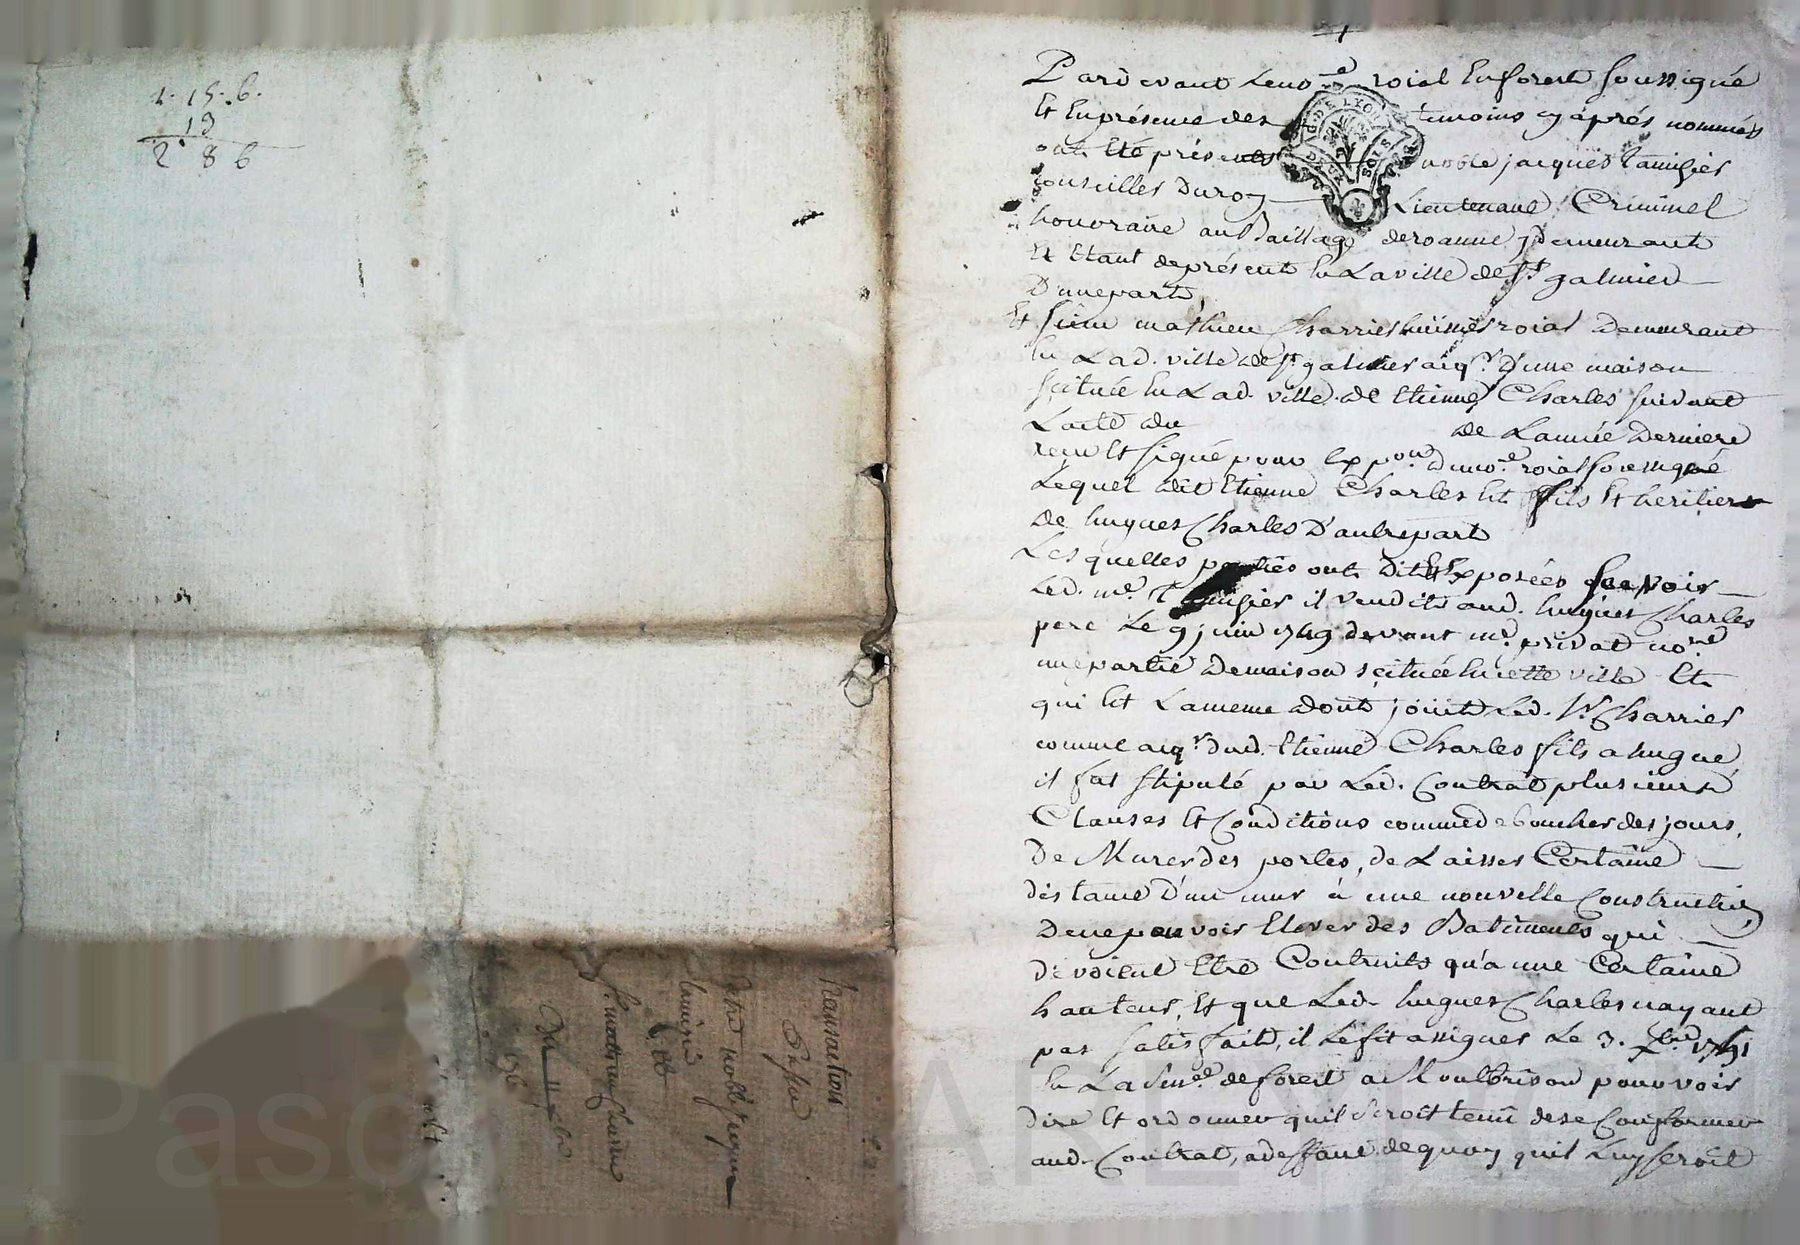 1. 15. 6.
13
2 8 6
Pardevant Le no.re roial En forest soussigné
Et En présence des témoins cy après nommés
ont été présents noble jacques
conseiller Du roy Lieutenant Criminel
honoraire au Baillage de roanne y Demeurant
Et Etant de présent En La ville de St galmier
D'une part,
Et sieur mathieu Charrier huissier roial Demeurant
En Lad. ville de St galmier aiqr. D'une maison
scituée En Lad. ville de Etienne Charles suivant
L'acte du de L'année Derniere
recu Et signé pour Expon. du no.re roial soussigné
Lequel dit Etienne Charles Est fils Et heritier
de hugues Charles D'autre part
Lesquelles parties ont Dit Et Exposées scavoir
Led. me. il vendit aud. hugues Charles
pere Le 9 juin 1749 devant me. privat no.re
une partie De maison scituée En cette ville Et
qui Est La meme dont jouit Led. Sr. Charrier
comme aiqr. Dud. Etienne Charles fils a hugue
il fut stipulé par Led. Contrat plusieurs
Clauses Et Conditions comme de boucher des jours,
De Murer des portes, de Laisser Certaine
distance D'un mur à une nouvelle Construction,
De ne pouvoir Elever des Batiments qui
devoient Etre Contruits qu'a une Certaine
hauteur, Et que Led. hugues Charles nayant
pas satisfait, il Le fit assigner Le 3. 1751
En La Sen.ée de forest a Montbrison pour voir
dire Et ordonner quil seroit tenu de se Conformer
aud. Contrat, a deffaut de quoy quil Luy seroit
transaction
Entre noble jacques
St. mathieu Charrier